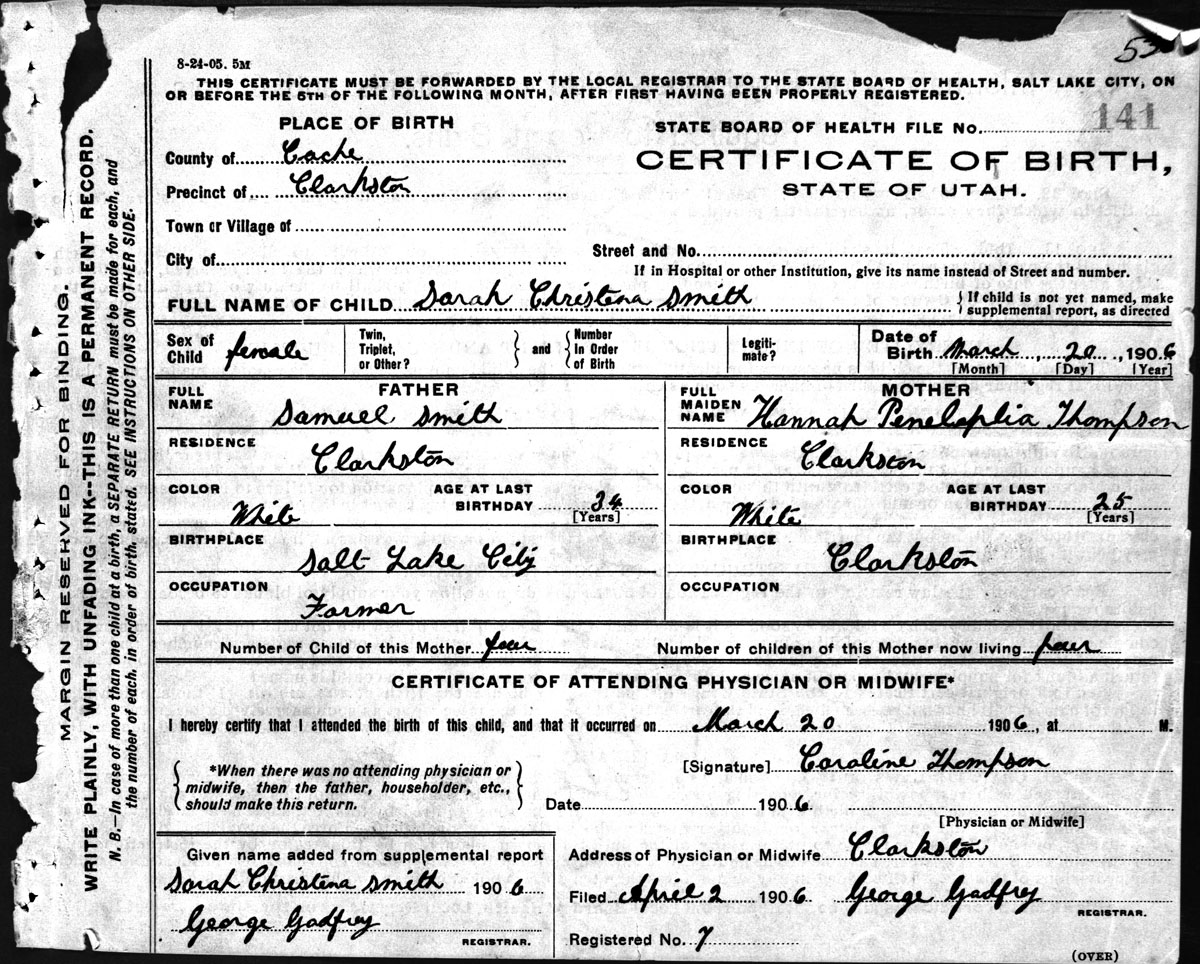 53
8-24-05. 5M
THIS CERTIFICATE MUST BE FORWARDED BY THE LOCAL REGISTRAR TO THE STATE BOARD OF HEALTH, SALT LAKE CITY, ON
OR BEFORE THE 5TH OF THE FOLLOWING MONTH, AFTER FIRST HAVING BEEN PROPERLY REGISTERED.
PLACE OF BIRTH
County of Cache
Precinct of Clarkston
Town or Village of
City of
STATE BOARD OF HEALTH FILE No. 141
CERTIFICATE OF BIRTH,
STATE OF UTAH.
Street and No.
If in Hospital or other Institution, give its name instead of Street and number.
FULL NAME OF CHILD Sarah Christena Smith
} If child is not yet named, make
supplemental report, as directed
Sex of
Child female
Twin,
Triplet,
or Other?
} and {
Number
In Order
of Birth
Legiti-
mate?
Date of
Birth March, 20, 1906
[Month] [Day] [Year]
FATHER
FULL
NAME Samuel Smith
RESIDENCE
Clarkston
COLOR
White
AGE AT LAST
BIRTHDAY 34
[Years]
BIRTHPLACE
Salt Lake City
OCCUPATION
Farmer
MOTHER
FULL
MAIDEN
NAME Hannah Penelaplia Thompson
RESIDENCE
Clarkston
COLOR
White
AGE AT LAST
BIRTHDAY 25
[Years]
BIRTHPLACE
Clarkston
OCCUPATION
Number of Child of this Mother four
Number of children of this Mother now living four
CERTIFICATE OF ATTENDING PHYSICIAN OR MIDWIFE*
I hereby certify that I attended the birth of this child, and that it occurred on March 20 1906, at M.
{ *When there was no attending physician or
midwife, then the father, householder, etc.,
should make this return. }
[Signature] Caroline Thompson
Date 1906
[Physician or Midwife]
Given name added from supplemental report
Sarah Christena Smith 1906
George Godfrey
REGISTRAR.
Address of Physician or Midwife Clarkston
Filed April 2 1906 George Godfrey
REGISTRAR.
Registered No. 7
(OVER)
MARGIN RESERVED FOR BINDING.
WRITE PLAINLY, WITH UNFADING INK--THIS IS A PERMANENT RECORD.
N. B.—In case of more than one child at a birth, a SEPARATE RETURN must be made for each, and
the number of each, in order of birth, stated. SEE INSTRUCTIONS ON OTHER SIDE.